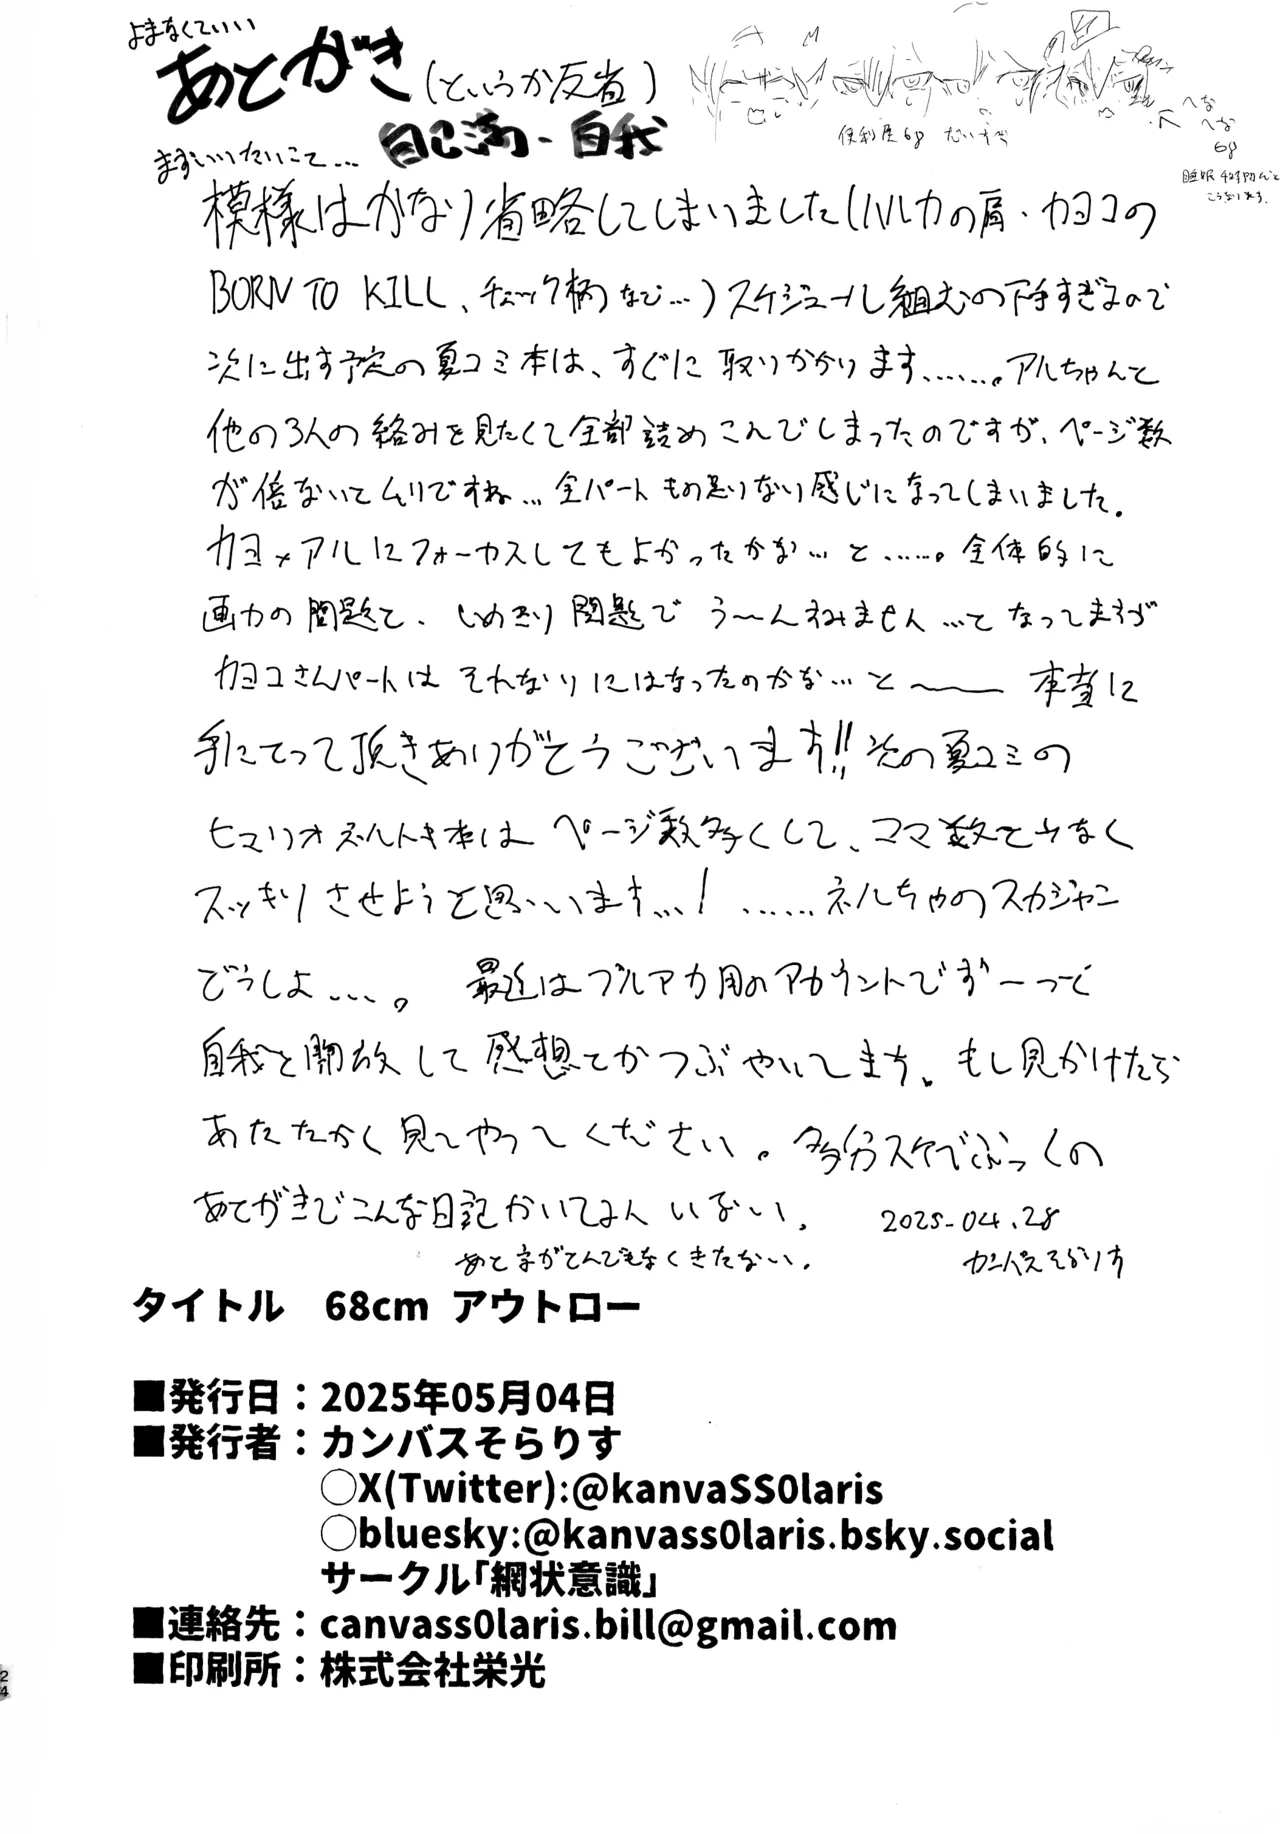 よまなくていい
あとがき(というか反省)
自己満-自我
便利屋68 だいすき
へな
へな
68
まずいいたいこと…
模様はかなり省略してしまいました(ハルカの肩・カヨコの
BORN TO KILL、チェック柄など…)スケジュール組むの下手すぎるので
次に出す予定の夏コミ本は、すぐに取りかかります……。アルちゃんと
他の3人の絡みを見たくて全部詰めこんでしまったのですが、ページ数
が倍ないとムリですね…全パートもの足りない感じになってしまいました。
カヨ×アルにフォーカスしてもよかったかな…と……。全体的に
画力の問題と、しめきり問題でう〜んすみません…となってますが
カヨコさんパートはそれなりにはなったのかな…と〜 本当に
手にとって頂きありがとうございます!!次の夏コミの
ヒマリオネルトキ本はページ数多くして、コマ数を少なく
スッキリさせようと思います…! ……ネルちゃのスカジャン
どうしよ…。 最近はブルアカ用のアカウントでず〜っと
自我を開放して感想とかつぶやいてます。もし見かけたら
あたたかく見てやってください。多分スケベぶっくの
あとがきでこんな日記かいてる人いない。 2025-04.28
あと字がとんでもなくきたない。 カンバスそらりす
タイトル 68cm アウトロー
■発行日：2025年05月04日
■発行者：カンバスそらりす
○X(Twitter):@kanvaSS0laris
○bluesky:@kanvass0laris.bsky.social
サークル「網状意識」
■連絡先：canvass0laris.bill@gmail.com
■印刷所：株式会社栄光
24